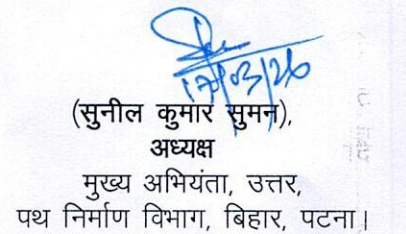 17/03/26
(सुनील कुमार सुमन),
अध्यक्ष
मुख्य अभियंता, उत्तर,
पथ निर्माण विभाग, बिहार, पटना।